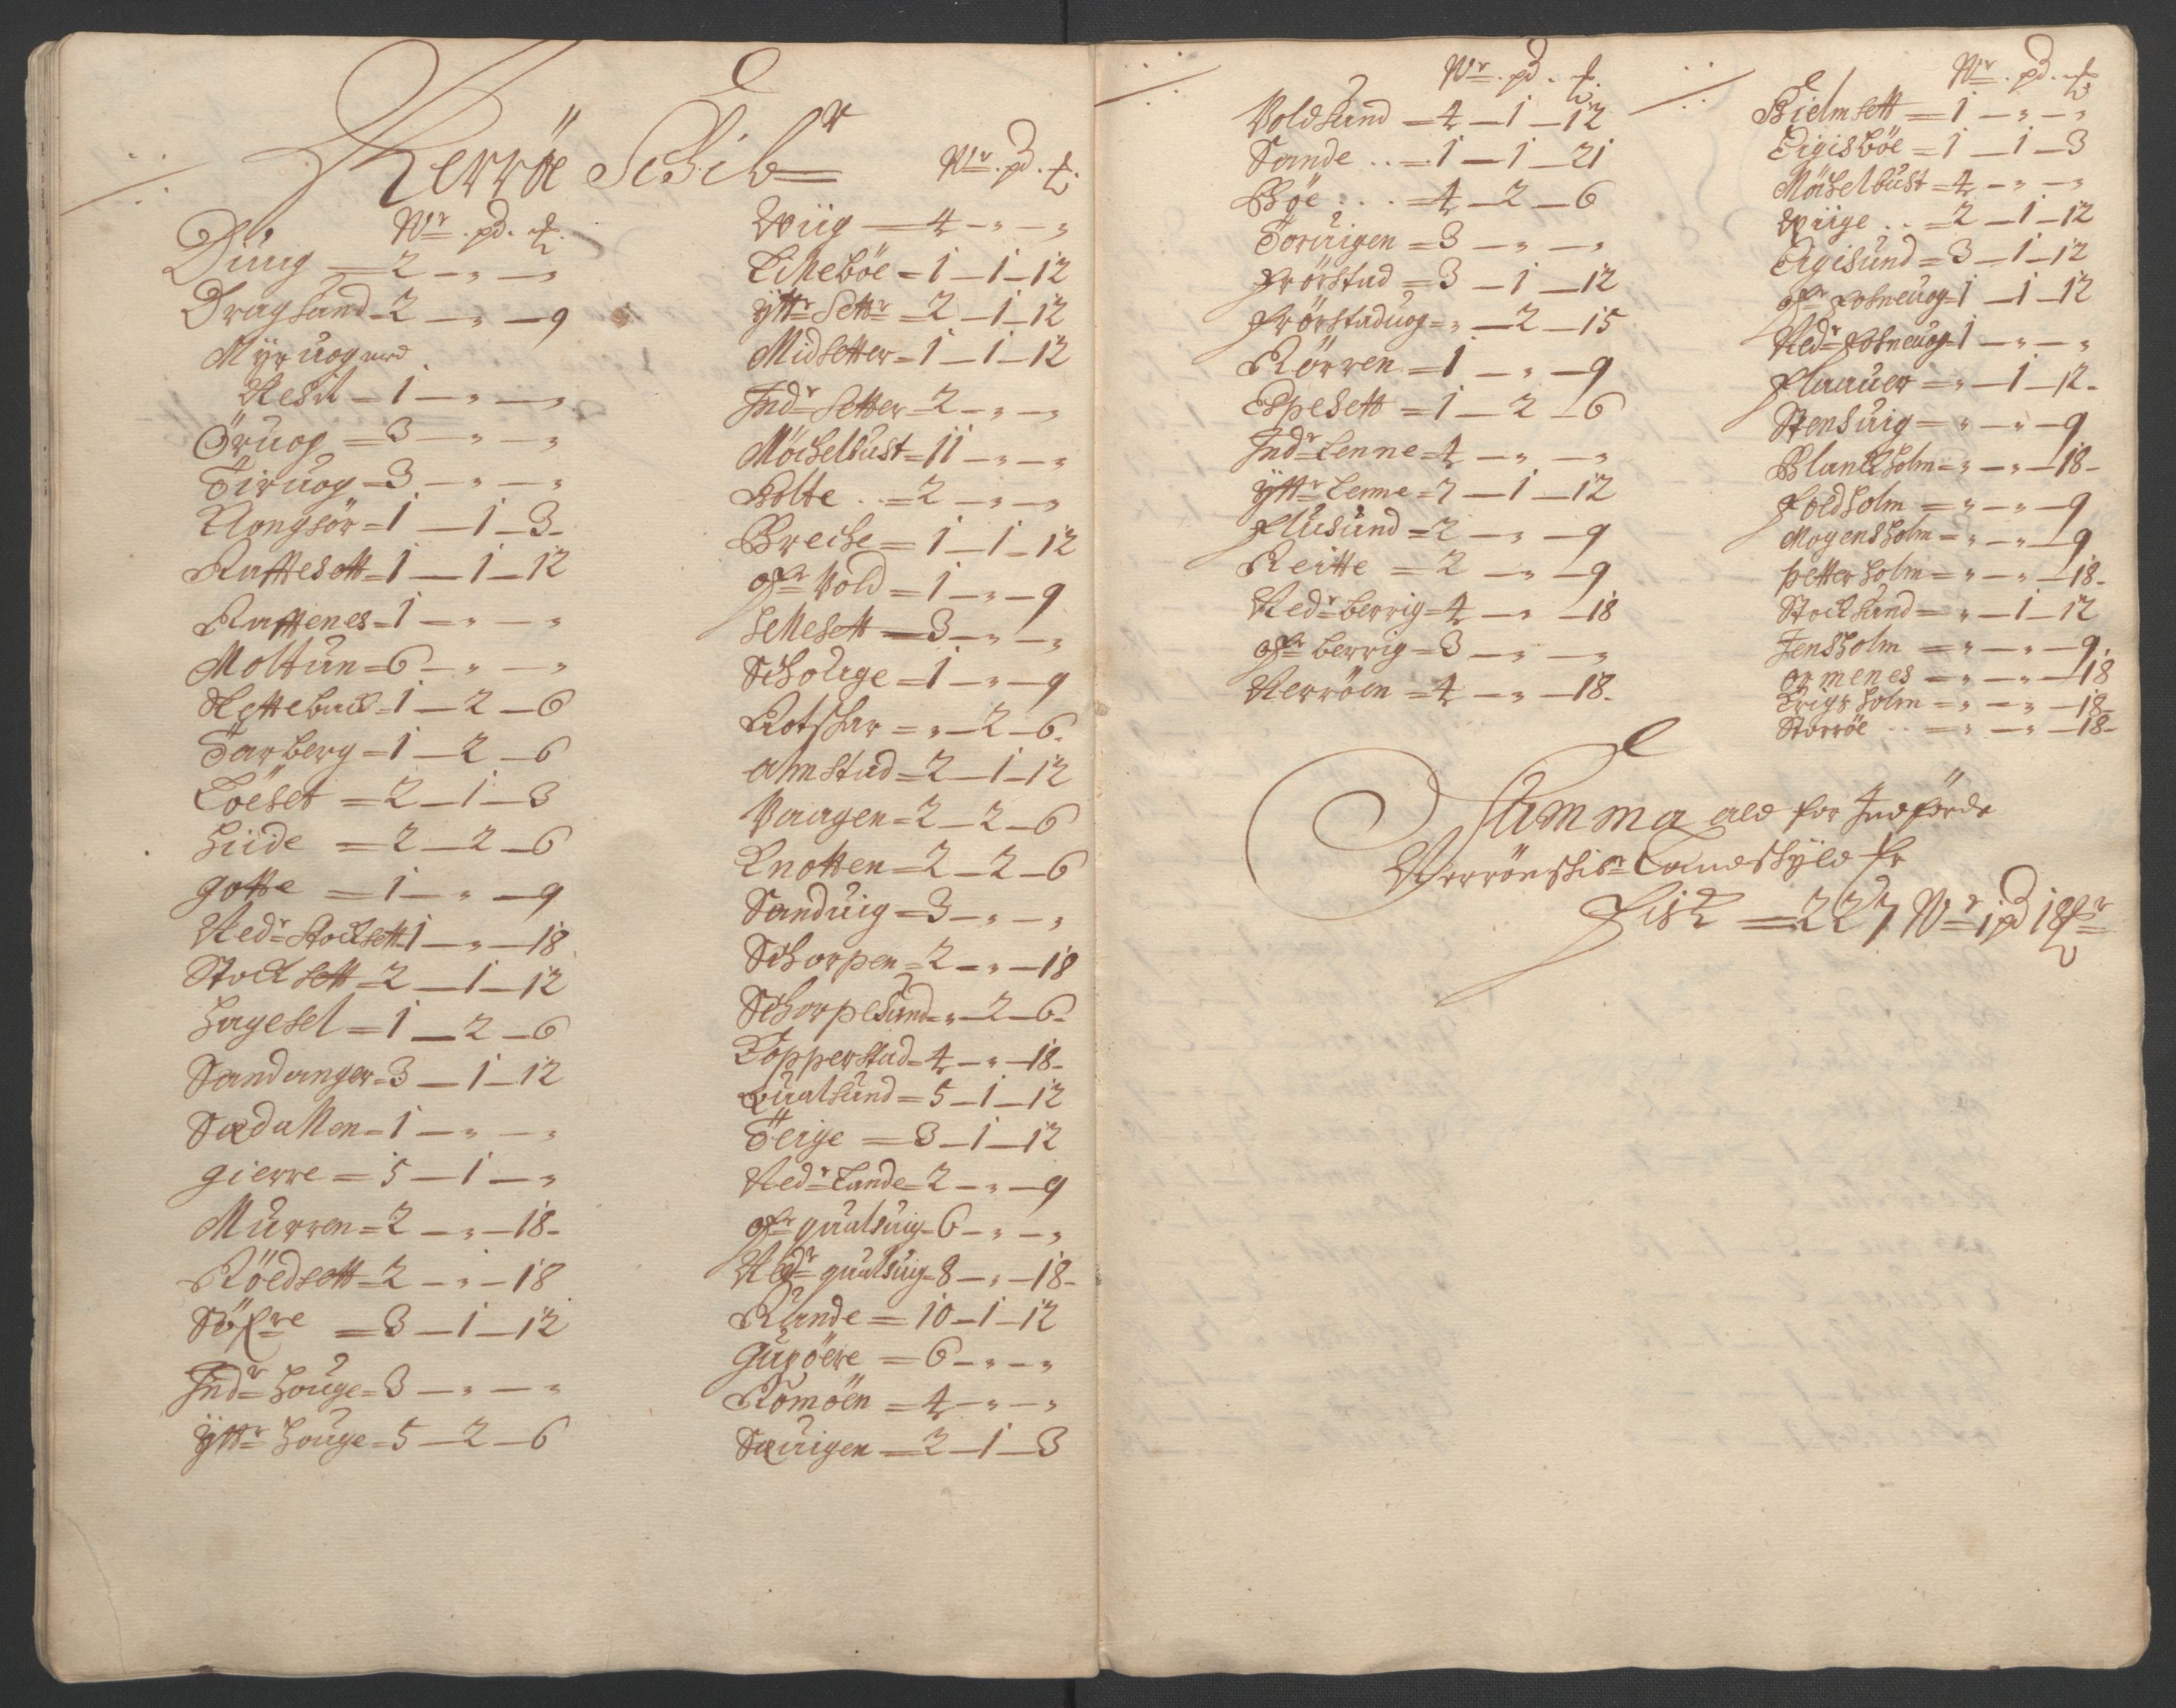 Herröe Schibr
Wr. pd. ℔.
Diug = 2 — „ — „
Dragsund = 2 — „ — 9
Myruog med
Nesit — 1 — „ — „
Öruog = 3 — „ — „
Tiruog = 3 — „ — „
Kongsör = 1 — 1 — 3
Raffteset = 1 — 1 — 12
Rafftenes = 1 — „ — „
Moltun = 6 — „ — „
Ketteback = 1 — 2 — 6
Tarberg = 1 — 2 — 6
Löeset = 2 — 1 — 3
Hiide = 2 — 2 — 6
Gotte = 1 — „ — 9
Nedr Stocksett = 1 — „ — 18
Stocksett = 2 — 1 — 12
Hagesel = 1 — 2 — 6
Sandanger = 3 — 1 — 12
Sædallen = 1 — „ — „
Gierre = 5 — 1 — „
Murren = 2 — „ — 18
Röedsett = 2 — „ — 18
Söfre = 3 — 1 — 12
Indr Houge = 3 — „ — „
Yttr Houge = 5 — 2 — 6
Wr. pd. ℔.
Wiig — 4 — „ — „
Lilleböe = 1 — 1 — 12
Yttr Settr = 2 — 1 — 12
Midsetter = 1 — 1 — 12
Indr Setter = 2 — „ — „
Möchelbust = 11 — „ — „
Holte .. = 2 — „ — „
Breche = 1 — 1 — 12
Ofr Vold = 1 — „ — 9
Sellesett = 3 — „ — „
Scholage = 1 — „ — 9
Rotshar = „ — 2 — 6
Almstad = 2 — 1 — 12
Vaagen = 2 — 2 — 6
Knotten = 2 — 2 — 6
Sanduig = 3 — „ — „
Schorpen = 2 — „ — 18
Schorpesund = „ — 2 — 6
Topperstad = 4 — „ — 18
Qualsund = 5 — 1 — 12
Teige = 3 — 1 — 12
Nedr Lande = 2 — „ — 9
Ofr qualsuig = 6 — „ — „
Nedr qualsuig = 8 — „ — 18
Rande = 10 — 1 — 12
Gurtzöere = 6 — „ — „
Romöen = 4 — „ — „
Sæuigen = 2 — 1 — 3
Wr. pd. ℔.
Voldsund = 4 — 1 — 12
Sande .. = 1 — 1 — 21
Böe . . . = 4 — 2 — 6
Toruigen = 3 — „ — „
Frörstad = 3 — 1 — 12
Frörstaduog = „ — 2 — 15
Rörren = 1 — „ — 9
Espesett = 1 — 2 — 6
Indr Lenne = 4 — „ — „
Yttr Lenne = 2 — 1 — 12
Flusund = 2 — „ — 9
Reitte = 2 — „ — 9
Nedr berrig = 4 — „ — 18
Ofr berrig = 3 — „ — „
Nerröen = 4 — „ — 18
Wr. pd. ℔
Bielmsett = 1 — „ — „
Eigisböe = 1 — 1 — 3
Möchelbust = 4 — „ — „
Wiige .. = 2 — 1 — 12
Eigisund = 3 — 1 — 12
Ofr Fosneuog = 1 — 1 — 12
Nedr Fosneuog = 1 — „ — „
Flaauer = „ — 1 — 12
Stensuig = „ — „ — 9
Blanckholm = „ — „ — 18
Foldholm = „ — „ — 9
Mogensholm = „ — „ — 9
Petterholm = „ — „ — 18
Stocksund = „ — 1 — 12
Jensholm = „ — „ — 9
Ormenes = „ — „ — 18
Krigsholm = „ — „ — 18
Storröe .. = „ — „ — 18
Summa ald for Indförde
Nerröe Schibr Landskyld er
Fisk = 227 Wr 1 pd 18 ℔r